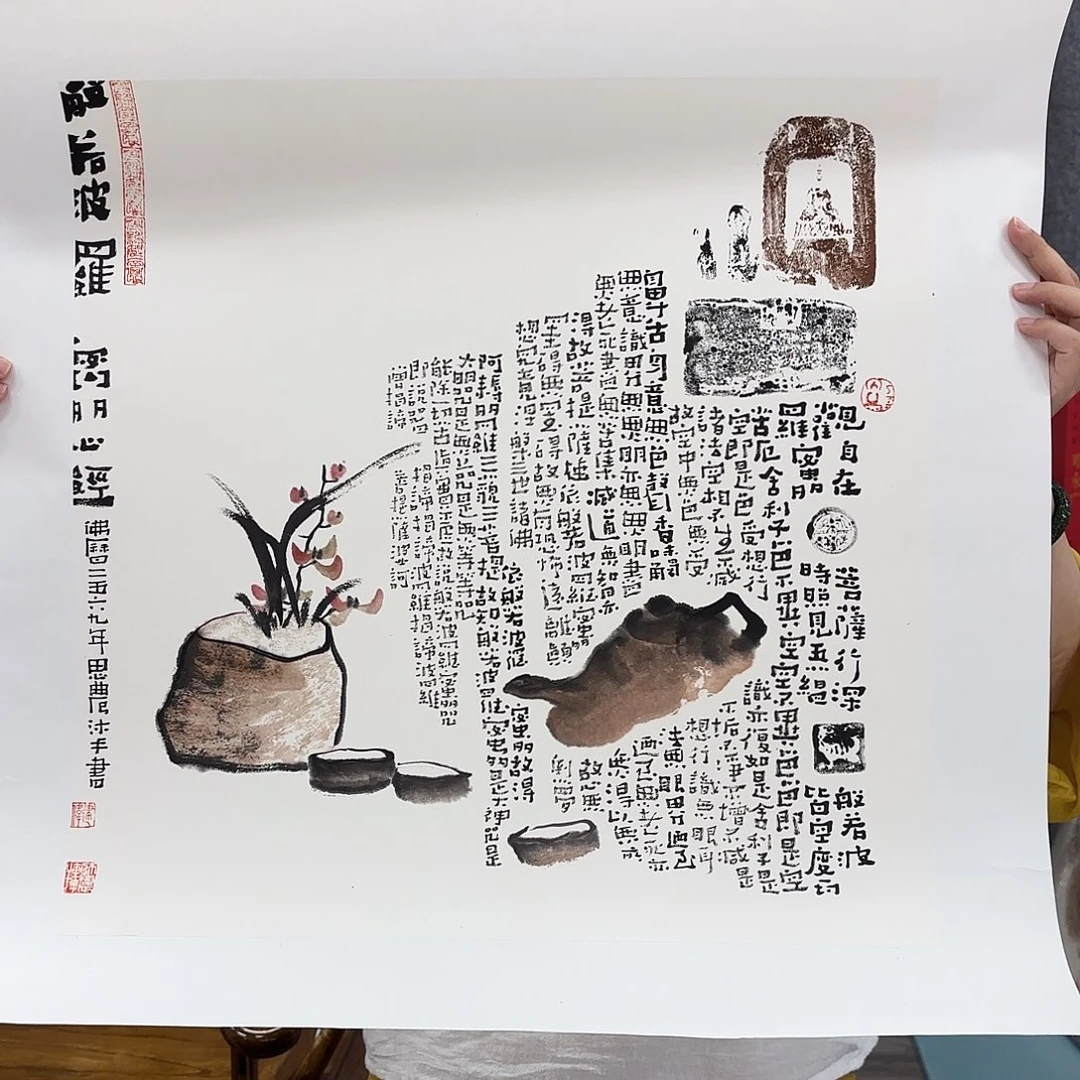 觀自在菩薩行深般若波
羅蜜多時照見五蘊皆空度一切
苦厄舍利子色不異空空不異色色即是空
空即是色受想行識亦復如是舍利子是
諸法空相不生不滅不垢不淨不增不減是
故空中無色無受想行識無眼耳
鼻舌身意無色聲香味觸法無眼界乃至
無意識界無無明亦無無明盡乃至無老死亦
無老死盡無苦集滅道無智亦無得以無所
得故菩提薩埵依般若波羅蜜多故心無
罣礙無罣礙故無有恐怖遠離顛倒夢
想究竟涅槃三世諸佛
依般若波羅蜜多故得
阿耨多羅三藐三菩提故知般若波羅蜜多是大神咒是
大明咒是無上咒是無等等咒
能除一切苦真實不虛故說般若波羅蜜多咒
即說咒曰揭諦揭諦波羅揭諦波羅
僧揭諦菩提薩婆訶
般若波羅蜜多心經
佛曆二五六九年思農沐手書